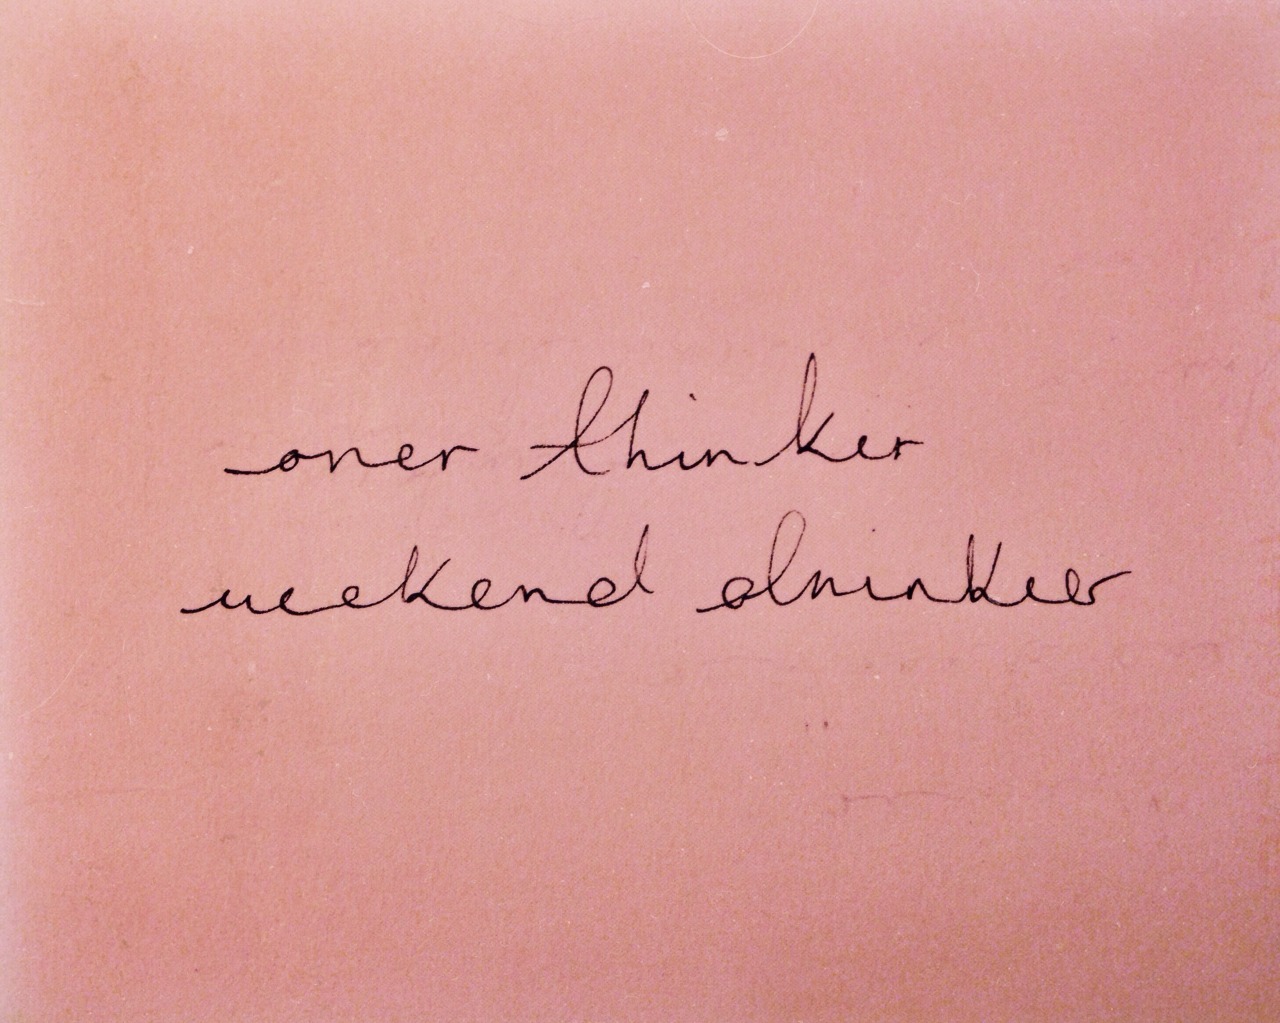 over thinker
weekend drinker